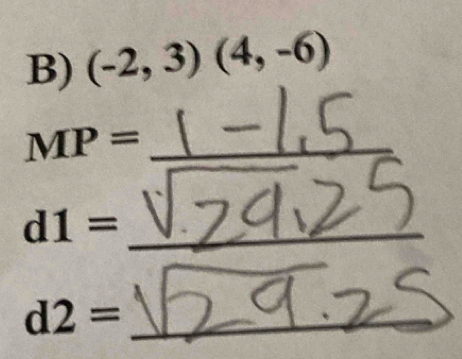 B) (-2, 3) (4, -6)
MP = 1 -1.5
d1 = √29.25
d2 = √29.25